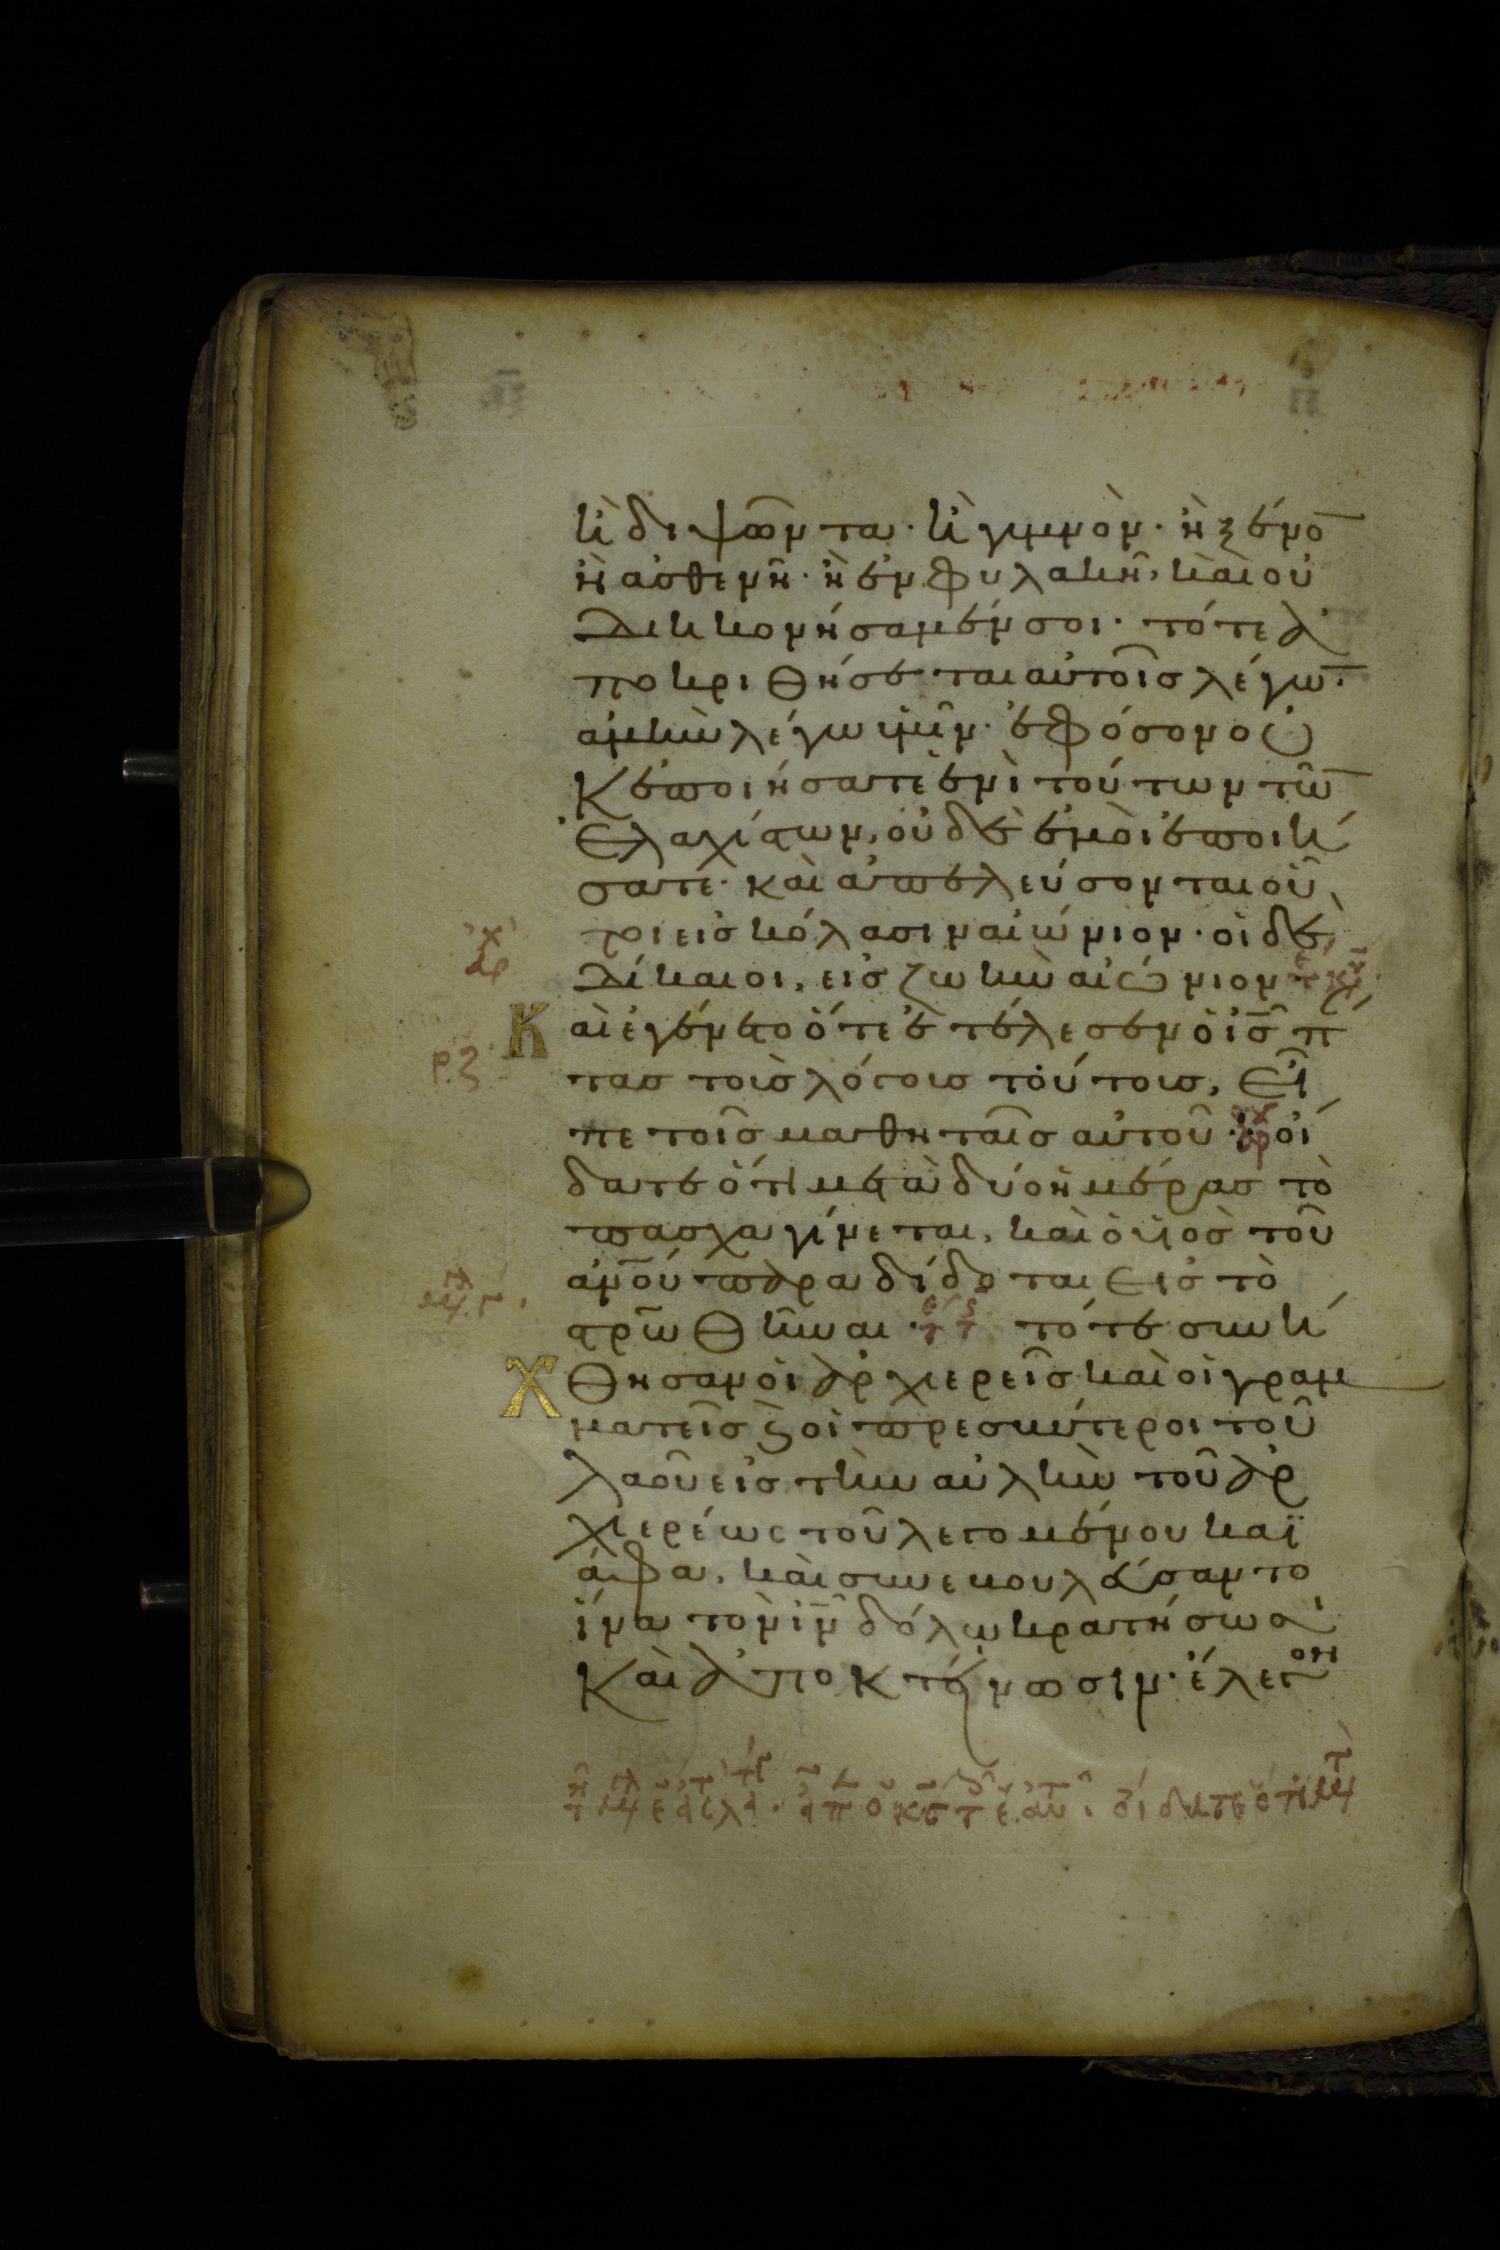 ἢ διψῶντα· ἢ γυμνὸν· ἢ ξένο̅
ἢ ἀσθενῆ· ἢ ἐν φυλακῆ, καὶ οὐ
διηκονήσαμέν σοι· τότε ἀ
ποκριθήσεται αὐτοῖσ λέγω̅·
ἀμὴν λέγω ὑμῖν· ἐφόσον οὐ
κ ἐποιήσατε ἑνὶ τούτων τῶ̅
ἐλαχίστων, οὐδὲ ἐμοὶ ἐποιή
σατε· καὶ ἀπελεύσονται οὗ
τοι εἰσ κόλασιν αἰώνιον· οἱ δὲ
δίκαιοι, εἰσ ζωὴν αἰώνιον·
Καὶ ἐγένετο ὅτε ἐτέλεσεν ὁ ι̅σ̅ πά
τασ τοὺσ λόγουσ τούτουσ, εἶ
πε τοῖσ μαθηταῖσ αὐτοῦ· οἴ
δατε ὅτι μετὰ δύο ἡμέρασ τὸ
πάσχα γίνεται, καὶ ὁ υἱὸσ τοῦ
α̅ν̅ο̅υ̅ παραδίδοται εἰσ τὸ
στ̅ρ̅ω̅θῆναι· τότε συνή
χθησαν οἱ ἀρχιερεῖσ καὶ οἱ γραμ
ματεῖσ ϗ οἱ πρεσβύτεροι τοῦ
λαοῦ εἰσ τὴν αὐλὴν τοῦ ἀρ
χιερέωσ τοῦ λεγομένου καϊ
άφα, καὶ συνεβουλεύσαντο
ἵνα τὸν ι̅ν̅ δόλω κρατήσωσι
καὶ ἀποκτείνωσιν· ἔλεγον